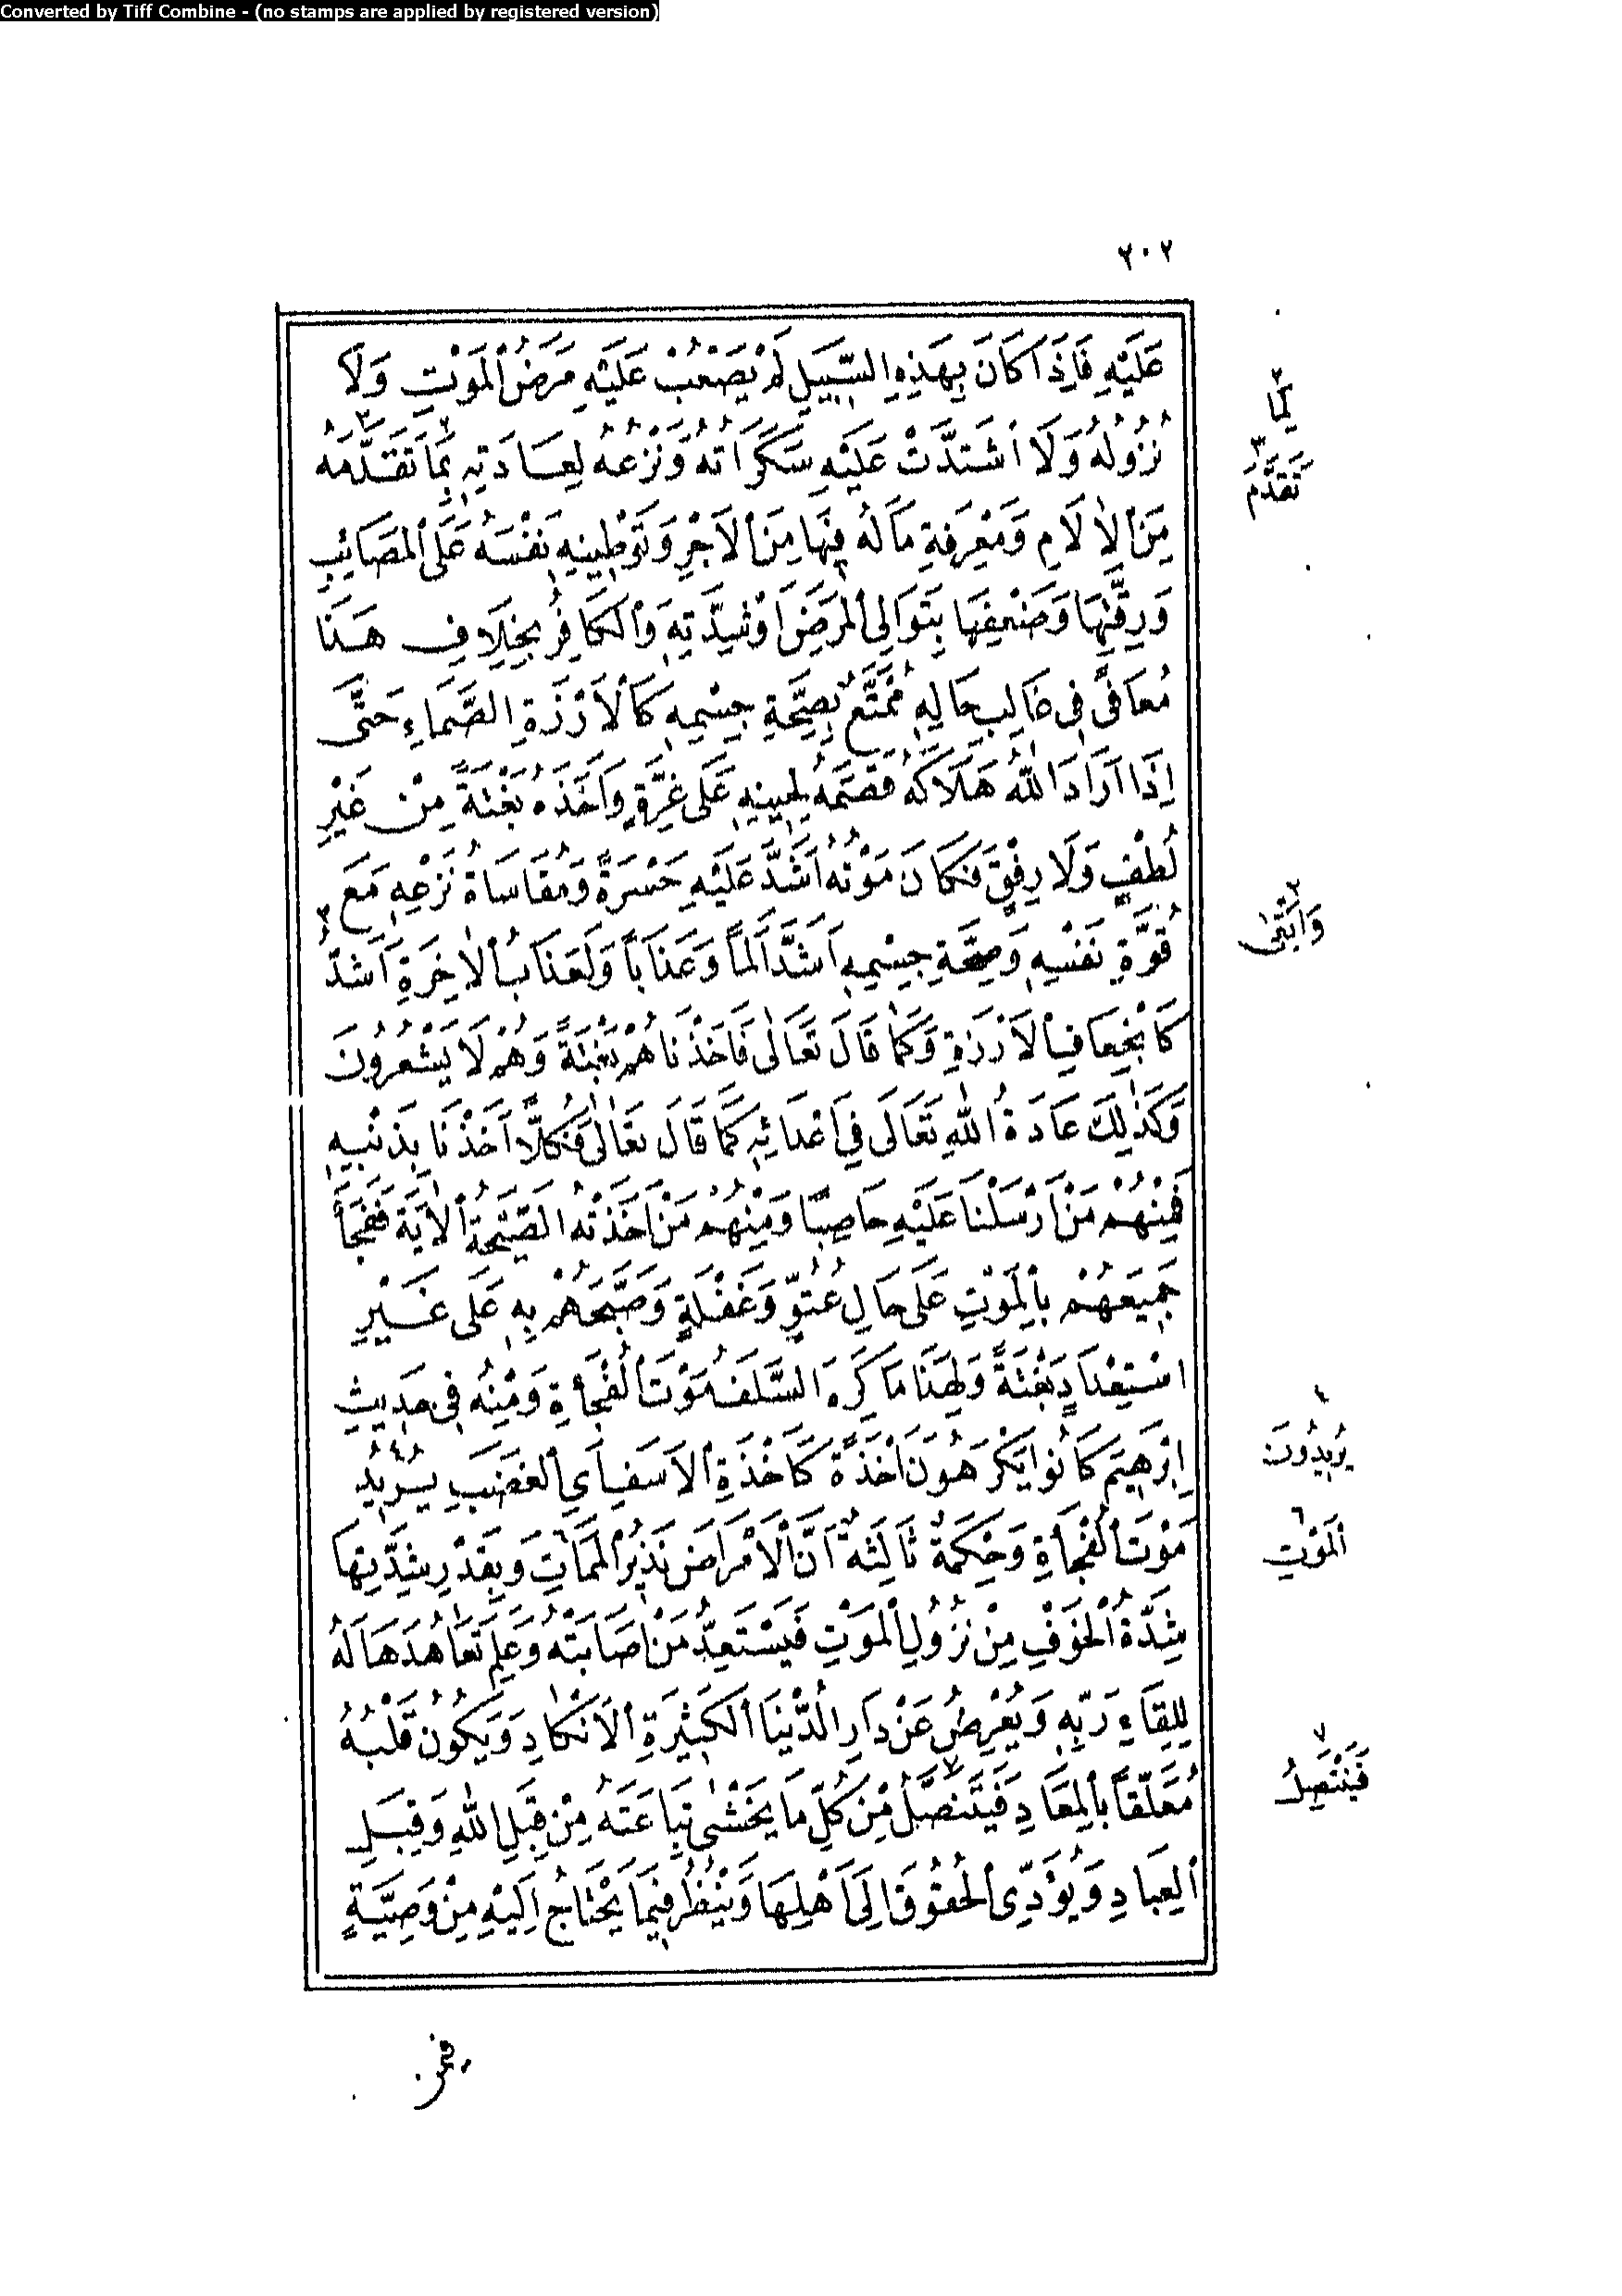 Converted by Tiff Combine - (no stamps are applied by registered version)
٢٠٢
عَلَيْهِ فَاِذَا كَانَ بِهَذِهِ السَّبِيلِ لَمْ يَصْعُبْ عَلَيْهِ مَرَضُ الْمَوْتِ وَلَا
نُزُولُهُ وَلَا اشْتَدَّتْ عَلَيْهِ سَكَرَاتُهُ وَنَزْعُهُ لِعَادَتِهِ بِمَا تَقَدَّمَهُ
مِنَ الْاٰلَامِ وَمَعْرِفَةِ مَالَهُ فِيهَا مِنَ الْاَجْرِ وَتَوْطِينِهِ نَفْسَهُ عَلَى الْمَصَائِبِ
وَرِقَّتِهَا وَضَعْفِهَا بِتَوَالِى الْمَرَضِ اَوْ شِدَّتِهِ وَالْكَافِرُ بِخِلَافِ هَذَا
مُعَافًى فِى غَالِبِ حَالِهِ مُمَتَّعٌ بِصِحَّةِ جِسْمِهِ كَالْاَرْزَةِ الصَّمَاءِ حَتَّى
اِذَا اَرَادَ اللّٰهُ هَلَاكَهُ قَصَمَهُ لِحِينِهِ عَلَى غِرَّةٍ وَاَخَذَهُ بَغْتَةً مِنْ غَيْرِ
لُطْفٍ وَلَا رِفْقٍ فَكَانَ مَوْتُهُ اَشَدَّ عَلَيْهِ حَسْرَةً وَمُقَاسَاةُ نَزْعِهِ مَعَ
قُوَّةِ نَفْسِهِ وَصِحَّةِ جِسْمِهِ اَشَدَّ اَلَماً وَعَذَاباً وَلَعَذَابُ الْاٰخِرَةِ اَشَدُّ ٣
كَانْجِعَافِ الْاَرْزَةِ وَكَمَا قَالَ تَعَالٰى فَاَخَذْنَاهُمْ بَغْتَةً وَهُمْ لَا يَشْعُرُونَ
وَكَذٰلِكَ عَادَةُ اللّٰهِ تَعَالَى فِى اَعْدَائِهِ كَمَا قَالَ تَعَالٰى فَكُلًّا اَخَذْنَا بِذَنْبِهِ
فَمِنْهُمْ مَنْ اَرْسَلْنَا عَلَيْهِ حَاصِبًا وَمِنْهُمْ مَنْ اَخَذَتْهُ الصَّيْحَةُ الْاٰيَةَ فَفَجَأَ
جَمِيعَهُمْ بِالْمَوْتِ عَلَى حَالِ عُتُوٍّ وَغَفْلَةٍ وَصَبَّحَهُمْ بِهِ عَلَى غَيْرِ
اسْتِعْدَادٍ بَغْتَةً وَلِهَذَا مَا كَرِهَ السَّلَفُ مَوْتَ الْفُجْأَةِ وَمِنْهُ فِى حَدِيثِ
اِبْرَهِيمَ كَانُوا يَكْرَهُونَ اَخْذَةً كَاَخْذَةِ الْاَسَفِ اَىِ الْغَضَبِ يُرِيدُ ٤
مَوْتَ الْفُجْأَةِ وَحِكْمَةٌ ثَالِثَةٌ اَنَّ الْاَمْرَاضَ نَذِيرُ الْمَمَاتِ وَبِقَدْرِ شِدَّتِهَا
شِدَّةُ الْخَوْفِ مِنْ نُزُولِ الْمَوْتِ فَيَسْتَعِدُّ مَنْ اَصَابَتْهُ وَعَلِمَ تَعَاهُدَهَا لَهُ
لِلِقَاءِ رَبِّهِ وَيُعْرِضُ عَنْ دَارِ الدُّنْيَا الْكَثِيرَةِ الْاَنْكَادِ وَيَكُونُ قَلْبُهُ
مُعَلَّقاً بِالْمَعَادِ فَيَتَنَصَّلُ ٧ مِنْ كُلِّ مَا يَخْشٰى تِبَاعَتَهُ مِنْ قِبَلِ اللّٰهِ وَقِبَلِ
الْعِبَادِ وَيُؤَدِّى الْحُقُوقَ اِلَى اَهْلِهَا وَيَنْظُرُ فِيمَا يَحْتَاجُ اِلَيْهِ مِنْ وَصِيَّةٍ
٢
لِمَا
٣
تَقَدَّمَ
٣
وَاَبْقٰى
٤
يُرِيدُونَ
٦
اَلْمَوْتِ
٧
فَيَنْتَصِلُ